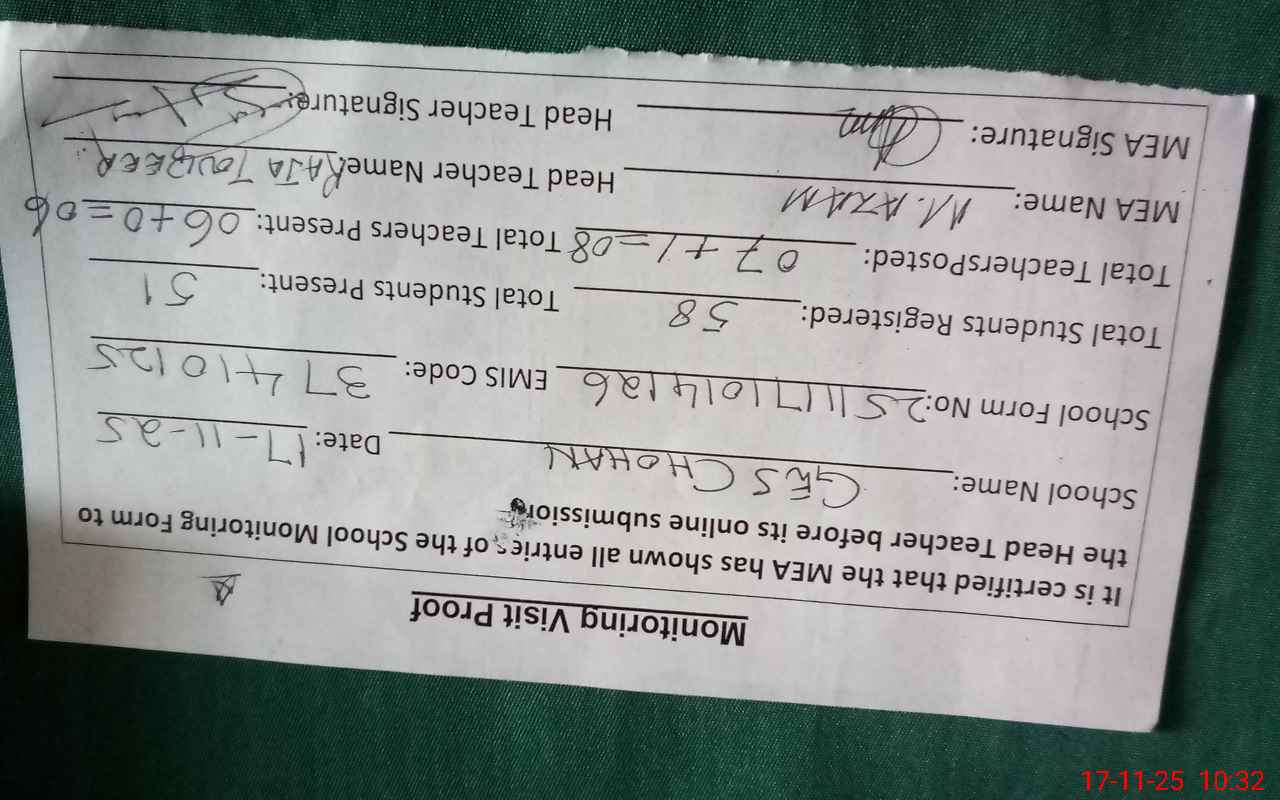 Monitoring Visit Proof
It is certified that the MEA has shown all entries of the School Monitoring Form to
the Head Teacher before its online submission.
School Name: GES CHOHAN Date: 17-11-25
School Form No: 2511171014126 EMIS Code: 37410125
Total Students Registered: 58 Total Students Present: 51
Total TeachersPosted: 07+1=08 Total Teachers Present: 06+0=06
MEA Name: M. AZAM Head Teacher Name RAJA TOUQEER
MEA Signature: Head Teacher Signature:
17-11-25 10:32